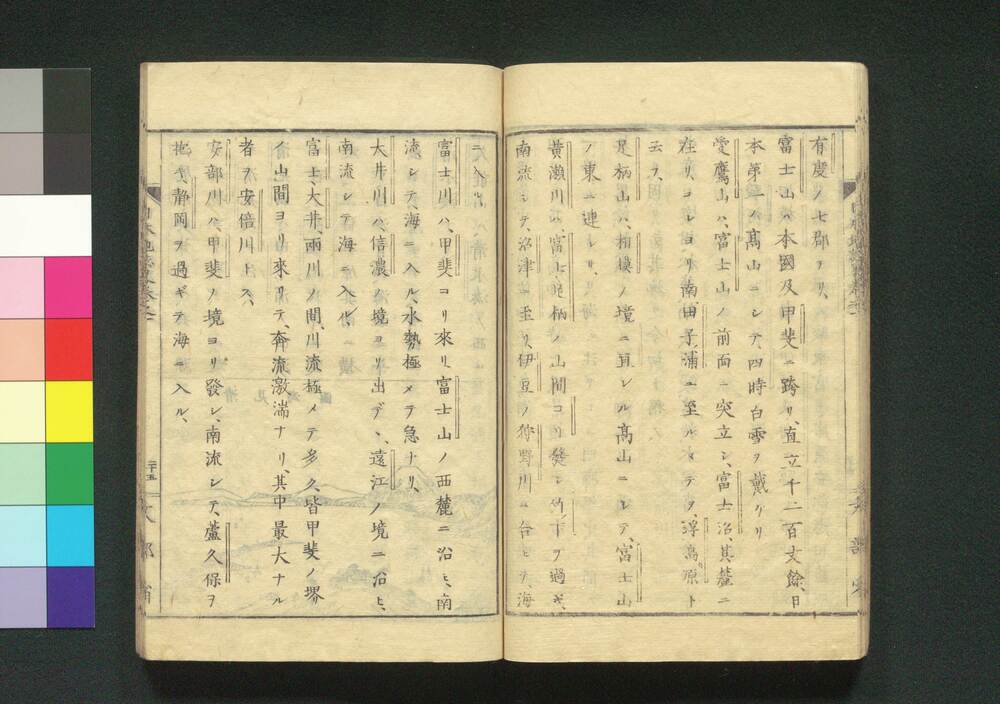 有度ノ七郡ヲアリ、
富士山ハ本國及甲斐ニ跨リ、直立千二百丈餘、日
本第一ノ髙山ニシテ、四時白雪ヲ戴ケリ
愛鷹山ハ、富士山ノ前面ニ突立シ、富士沼、其麓ニ
在リコレヨリ南田子浦ニ至ルマテヲ、浮島原ト
云フ、
足柄山ハ、相模ノ境ニ亘レル髙山ニシテ、富士山
ノ東ニ連レリ、
黄瀬川ハ、富士足柄ノ山間ヨリ發シ竹ノ下ヲ過ギ、
南流シテ、沼津ニ至リ、伊豆ノ狩野川ニ合シテ、海
ニ入ル、
富士川ハ、甲斐ヨリ來リ、富士山ノ西麓ニ沿ヒ、南
流シテ、海ニ入ル、水勢極メテ急ナリ、
大井川ハ、信濃ノ境ヨリ出デヽ、遠江ノ境ニ沿ヒ、
南流シテ海ニ入ル、
富士、大井、兩川ノ間、川流極メテ多ク、皆甲斐ノ堺
ノ山間ヨリ來リテ、奔流激湍ナリ、其中最大ナル
者ヲ安倍川トス、
安部川ハ、甲斐ノ境ヨリ發シ、南流シテ、蘆久保ヲ
抱キ、靜岡ヲ過ギテ海ニ入ル、
二十五
文部省